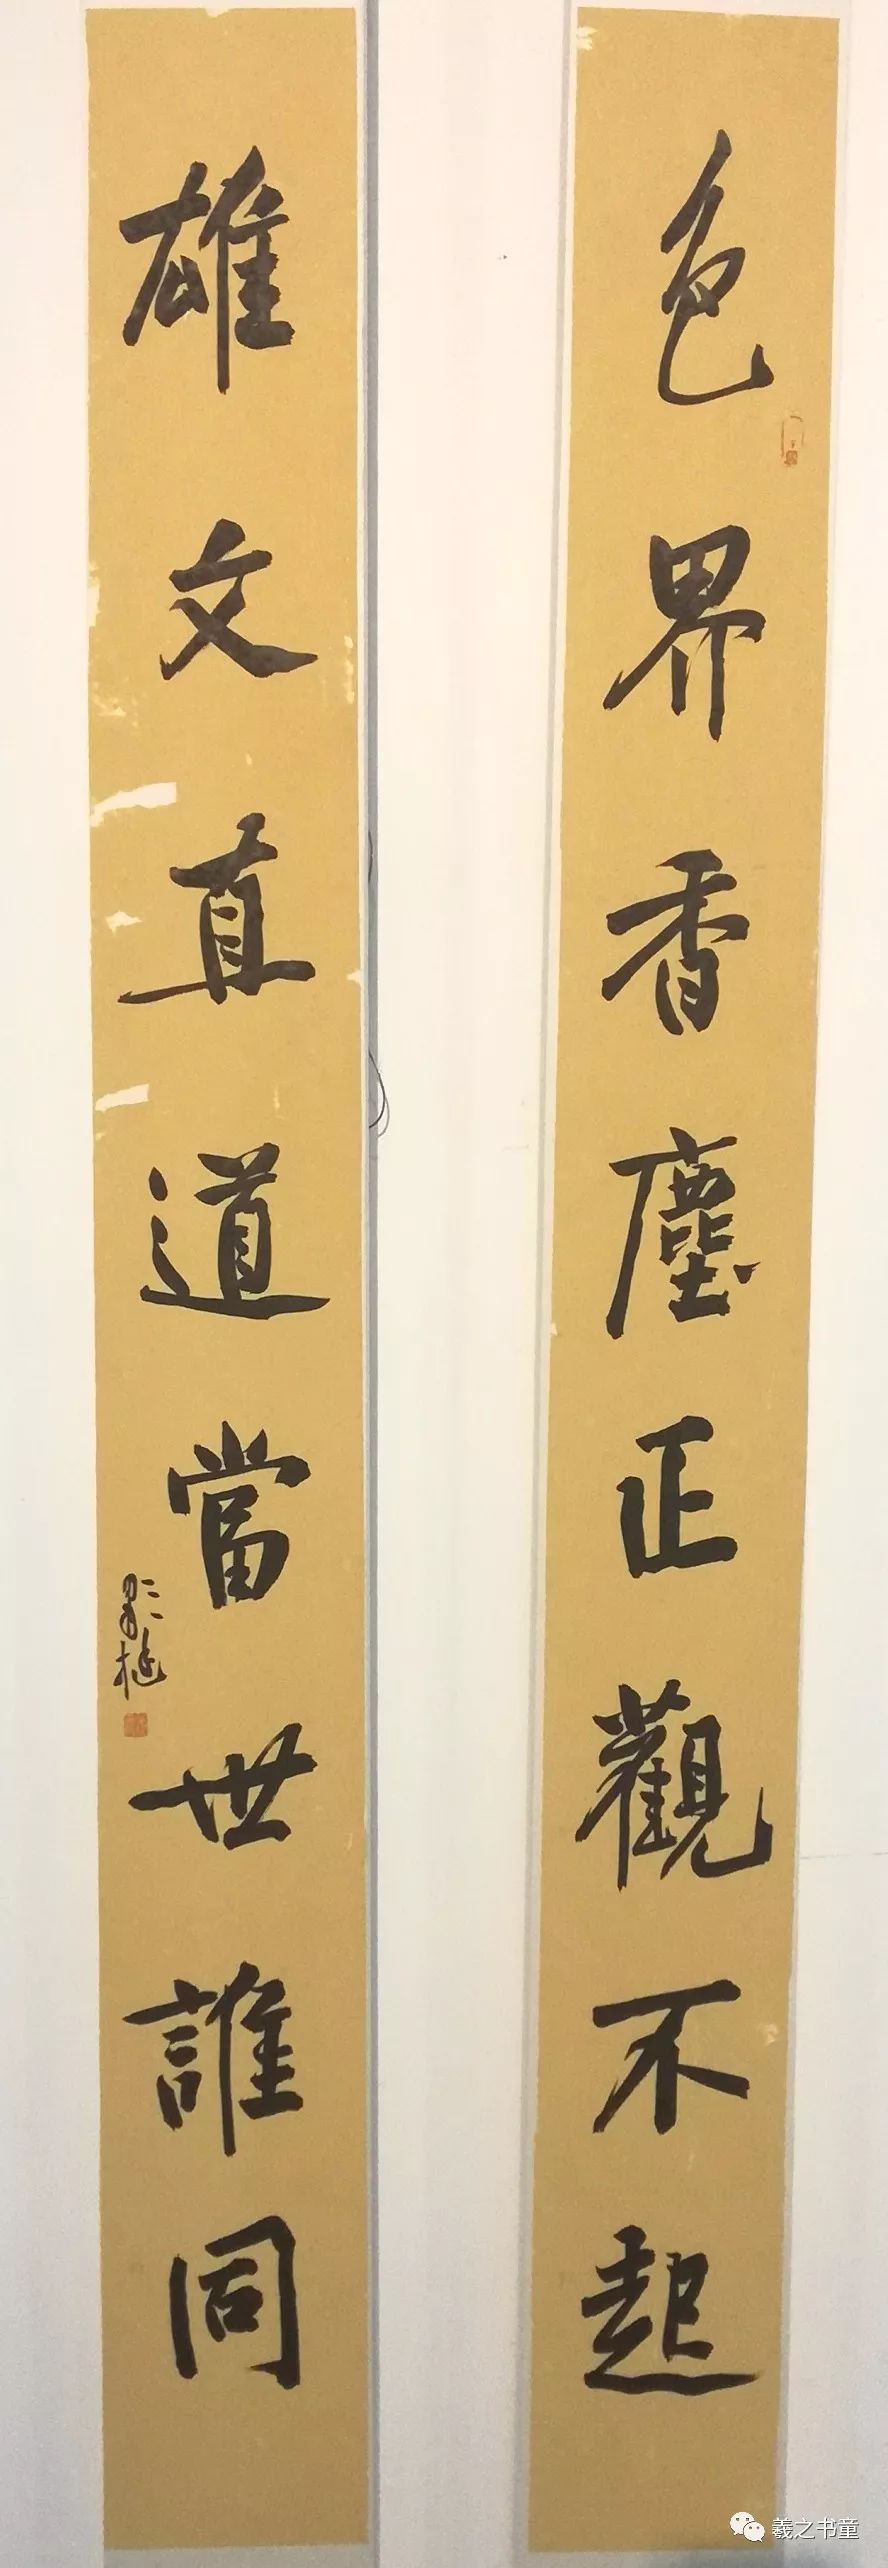 色界香塵正觀不起
雄文直道當世誰同
羲之书童